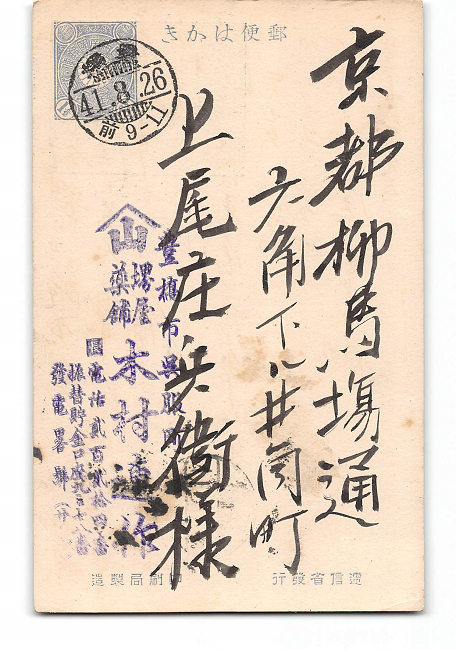 郵便はかき
京都柳馬塲通
六角下ル井筒町
上尾庄兵衛様
豊橋
41.8.26
前9-11
山
豊橋市呉服町
堺屋
薬舗
木村
電話貳百貳拾四番
振替貯金口座
發電畧號
逓信省發行
印刷局製造